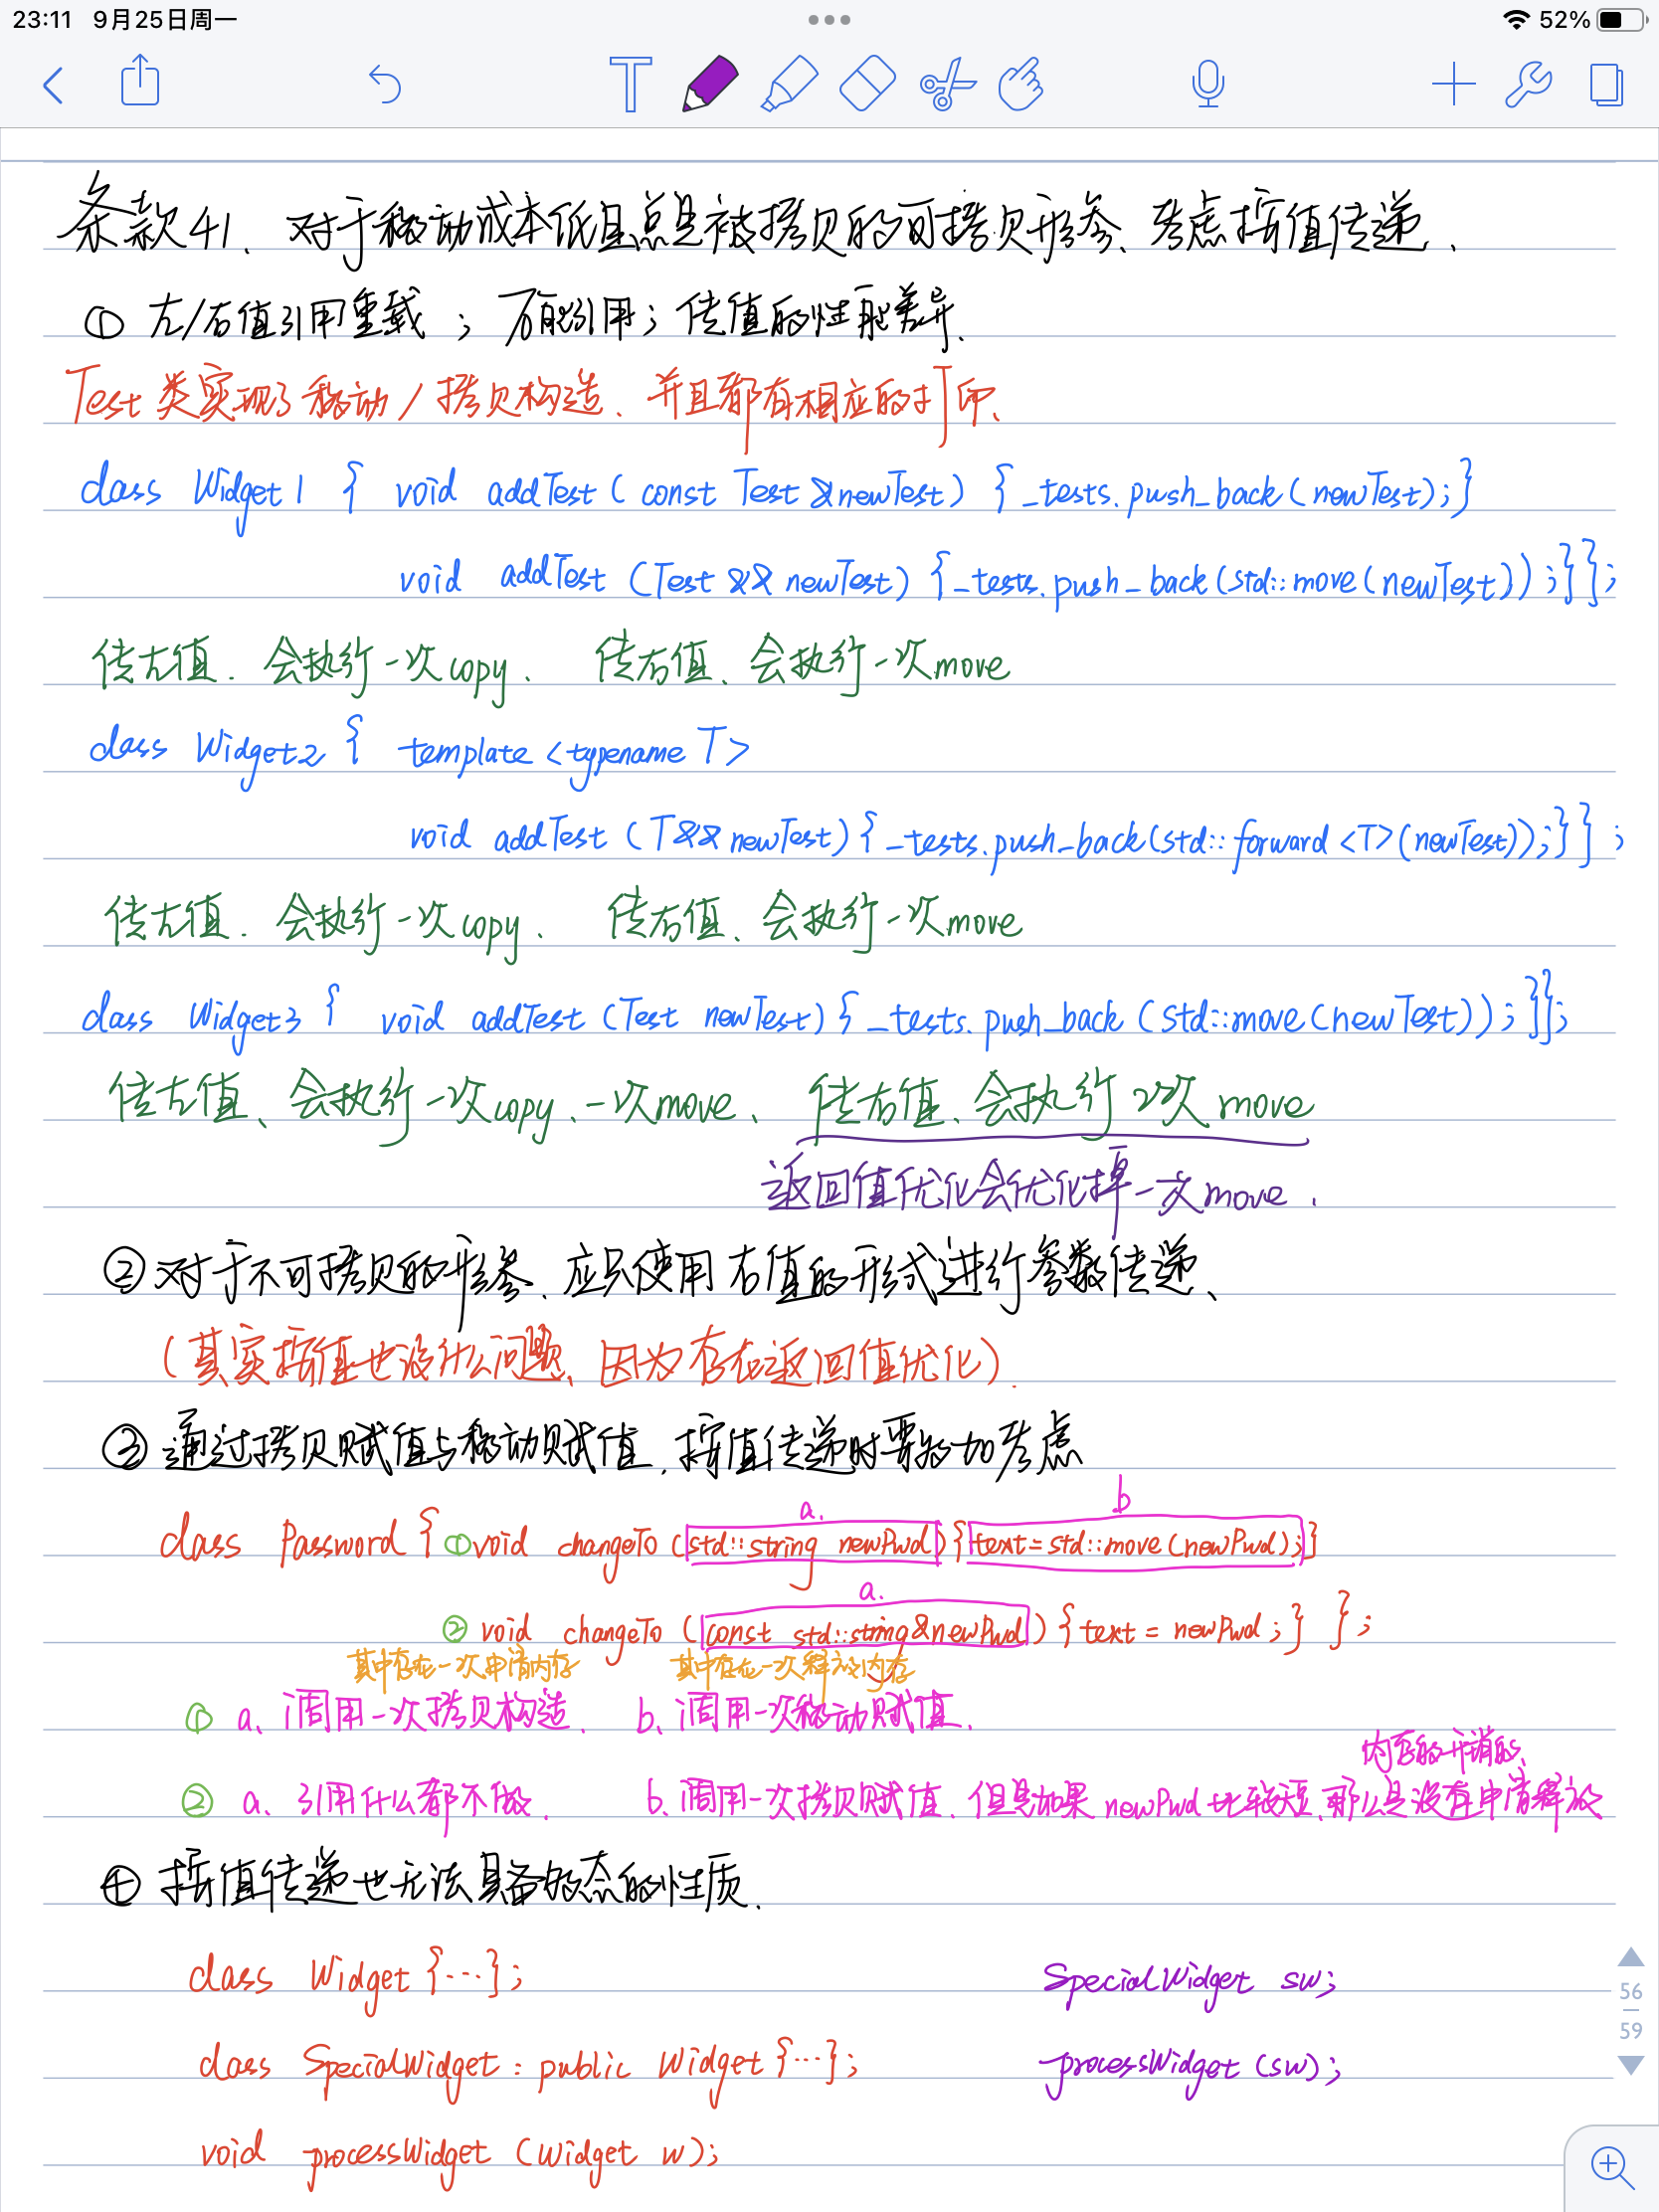 23:11 9月25日周一
52%
条款41、对于移动成本低且总是被拷贝的可拷贝形参、考虑按值传递、
① 左/右值引用重载；万能引用；传值的性能差异、
Test类实现了移动/拷贝构造、并且都有相应的打印、
class Widget1 { void addTest(const Test &newTest) {_tests.push_back(newTest);}
void addTest(Test && newTest) {_tests.push_back(std::move(newTest));}};
传左值、会执行一次copy、 传右值、会执行一次move
class Widget2 { template <typename T>
void addTest(T&& newTest){_tests.push_back(std::forward<T>(newTest));}};
传左值、会执行一次copy、 传右值、会执行一次move
class Widget3 { void addTest(Test newTest){_tests.push_back(std::move(newTest));}};
传左值、会执行一次copy、一次move、 传右值、会执行2次move
返回值优化会优化掉一次move、
② 对于不可拷贝的形参、应只使用右值的形式进行参数传递、
(其实按值也没什么问题、因为存在返回值优化)、
③ 通过拷贝赋值与移动赋值、按值传递时要多加考虑
a. b
class Password { ①void changeTo(std::string newPwd){text=std::move(newPwd);}
a.
② void changeTo(const std::string&newPwd){text = newPwd;} };
其中存在一次申请内存 其中存在一次释放内存
① a、调用一次拷贝构造、 b、调用一次移动赋值、
内存的开销的、
② a、引用什么都不做、 b、调用一次拷贝赋值、但是如果newPwd比较短、那么是没有申请释放
④ 按值传递也无法具备多态的性质、
class Widget {...}; SpecialWidget sw;
class SpecialWidget: public Widget {...}; processWidget(sw);
void processWidget(Widget w);
56
59